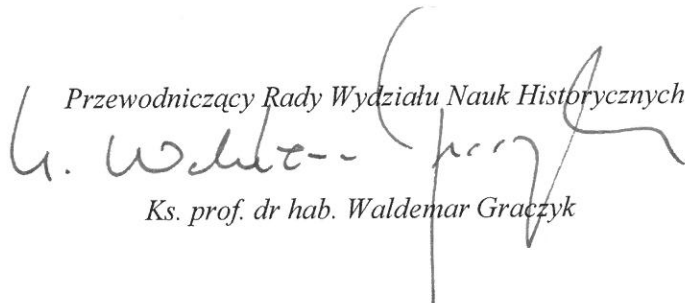 Przewodniczący Rady Wydziału Nauk Historycznych
Ks. prof. dr hab. Waldemar Graczyk